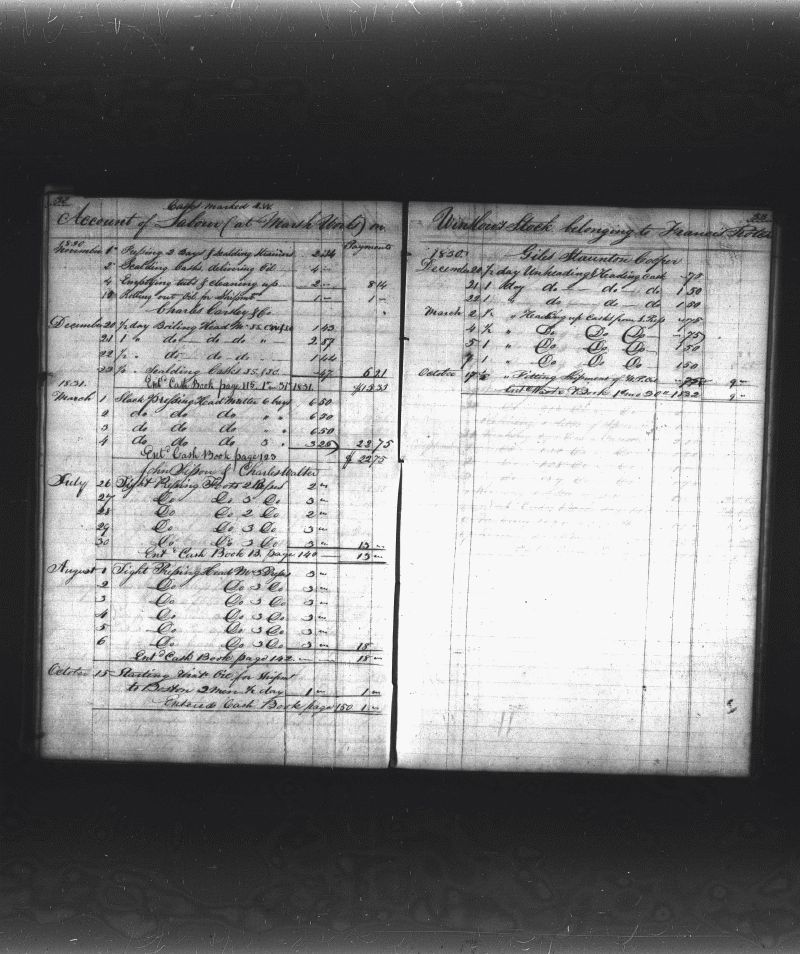 52
Casks marked S.W.
Account of Labour (at Marsh Works) on
1830 Payments
November 1st Pressing 2 Days & Scalding Strainers 2.34
2 Scalding Casks, delivering Oil 4 "
4 Emptying tubs & cleaning up 2 " 8 14
10 Rolling out Oil for Shipmt 1 " 1 "
Charles & Co
December 20 ½ day Boiling Head Mr 1 43
21 1 " do do do " 2.57
22 ½ " do do do 1 44
23 ½ " Scalding Casks 47 6 21
Entd Cash Book page 115, 1st mo 31st 1831. $15.35
1831.
March 1 Slack Pressing Head Matter 6 bags 6 50
2 do do do " " 6 50
3 do do do " " 6 50
4 do do do 3 " 3 25 22.75
Entd Cash Book page 123 $ 22.75
John Sisson & Charles Walter
July 26 Tight Pressing Foots 2 Presses 2 "
27 Do Do 3 Do 3 "
28 Do Do 2 Do 2 "
29 Do Do 3 Do 3 "
30 Do Do 3 Do 3 " 13 "
Entd Cash Book B, page 140 13 "
August 1 Tight Pressing Head Mr 3 Presses 3 "
2 Do Do 3 Do 3 "
3 Do Do 3 Do 3 "
4 Do Do 3 Do 3 "
5 Do Do 3 Do 3 "
6 Do Do 3 Do 3 " 18 "
Entd Cash Book page 142 18 "
October 15 Starting Wint Oil for Shipmt
to Boston 2 men ½ day 1 " 1 "
Entered Cash Book page 150 1 "
53
Winslow's Stock belonging to Francis Rotch
1830. Giles Staunton Cooper
December 20 ½ day Unheading & Heading Cask 75
21 1 day do do do 1 50
22 1 " do do do 1 50
March 2 ½ " Heading up Casks from Press 75
4 ½ " Do Do Do 75
5 1 " Do Do Do 1 50
7 1 " Do Do Do 1 50
October 17 ½ " Fitting Shipment of 75 9 "
Entd Book 1st mo 30th 1832 9 "